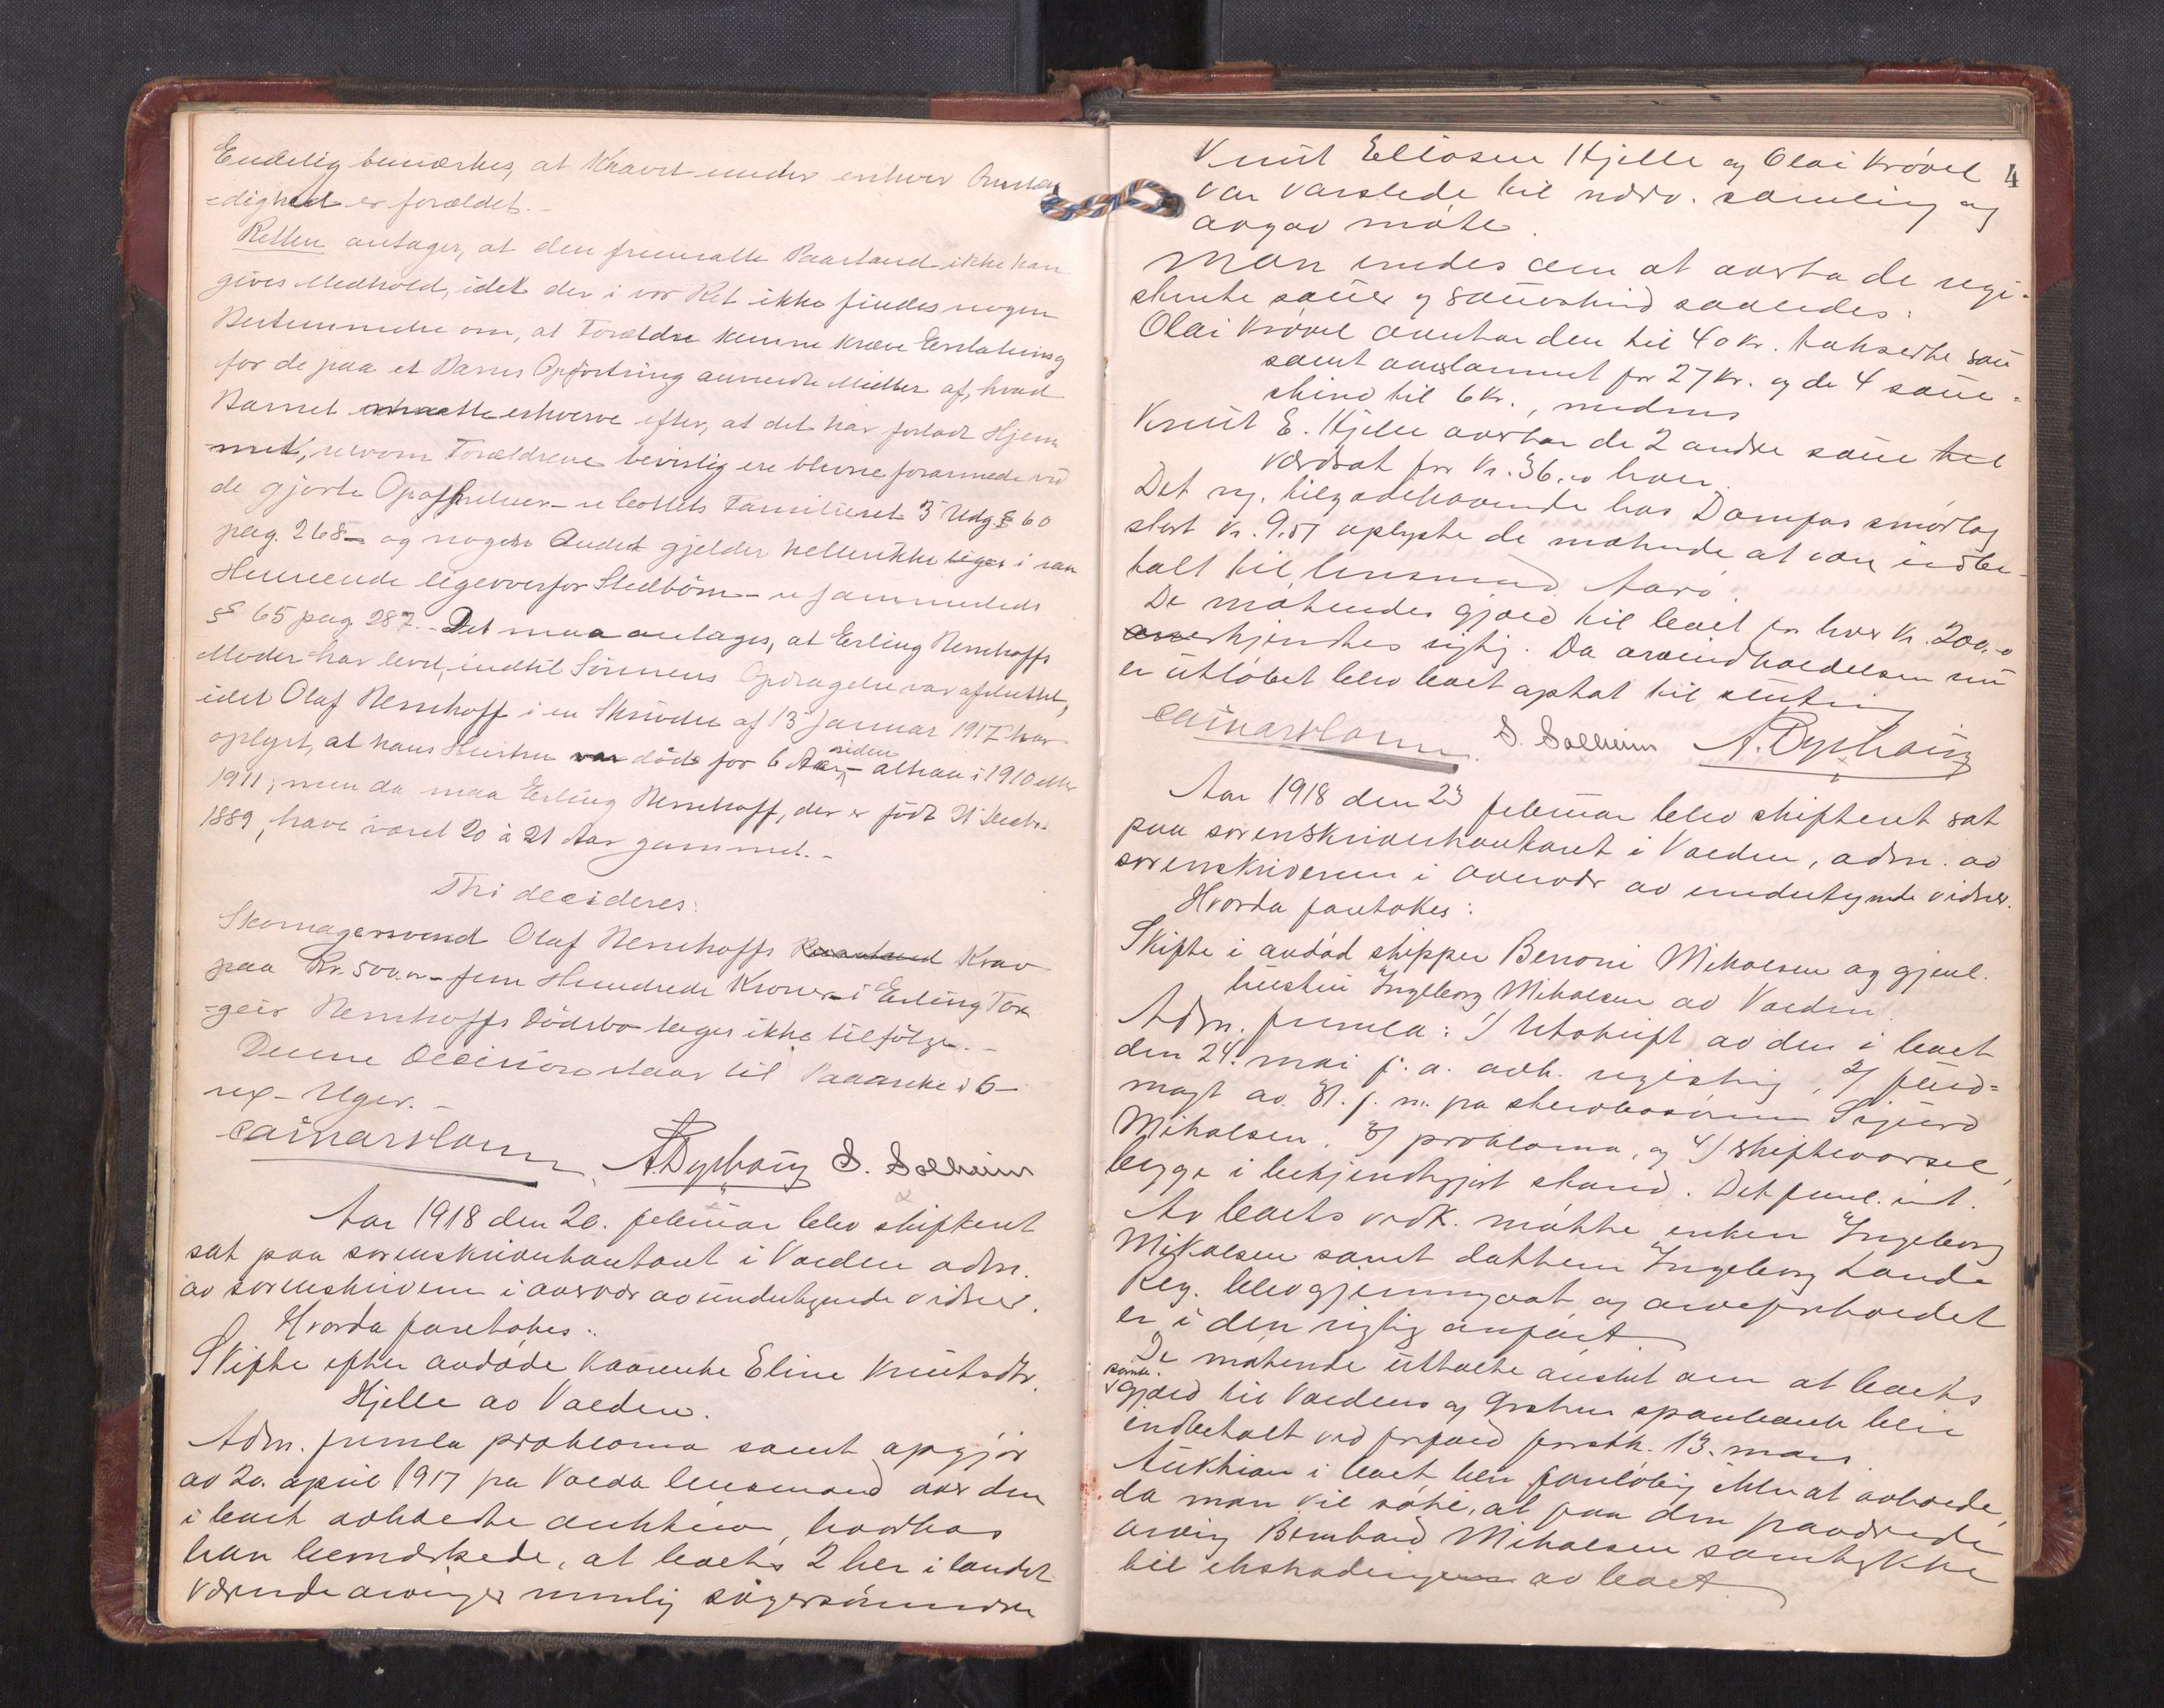 Endelig bemærkes, at Kravet under enhver Omstæn
=dighed er forældet. -
Retten antager, at den fremsatte Paastand ikke kan
gives Medhold, idet der i vor Ret ikke findes nogen
Bestemmelse om, at Forældre kunne kræve Erstatning
for de paa et Barns Opfostring anvendte Midler af, hvad
Barnet erhverve efter, at det har forladt Hjem
met, selvom Forældrene bevislig ere blevne forarmede ved
de gjorte Opofrelser - se Familieret 3 Udg. § 60
pag. 268 - og noget Andet gjelder heller ikke i saa
Henseende ligeoverfor Stedbörn - se sammesteds
§ 65 pag. 287. - Det maa antages, at Erling Nernhoffs
Moder har levet, indtil Sønnens Opdragelse var afsluttet,
idet Olaf Nernhoff i en Skrivelse af 13 Januar 1917 har
oplyst, at hans Hustru døde for 6 Aar siden - altsaa i 1910 eller
1911; men da maa Erling Nernhoff, der er født 21 Decbr.
1889, have været 20 à 21 Aar gammel. -
Thi decideres:
Skomagersvend Olaf Nernhoffs Krav
paa Kr. 500.00 - fem Hundrede Kroner - i Erling Tor
=geir Nernhoffs Dödsbo tages ikke tilfölge. -
Denne Decision staar til Paaanke i 6 -
sex - Uger. -
A. Dyphaug S. Solheim
Aar 1918 den 20. februar blev skifteret
sat paa sorenskriverkontoret i Volden adm.
av sorenskriveren i overvær av undertegnede vidner.
Hvorda foretokes:
Skifte efter avdøde kaarenke Eline Knutsdtr.
Hjelle av Volden.
Adm. fremla proklama samt opgjør
av 20. april 1917 fra Volda lensmand over den
i boet avholdte auktion, hvorhos
han bemerkede, at boets 2 her i landet
værende arvinger nemlig søstersønnerne
4
Knut Eliasen Hjelle og Olai Krøvel
var varslede til nærv. samling og
avgav møte.
Man enedes om at overta de regi-
strerte sauer og saueskind saaledes:
Olai Krøvel overtar den til 40 Kr. takserte sau
samt aarslammet for 27 Kr. og de 4 saue-
skind til 6 Kr., medens
Knut E. Hjelle overtar de 2 andre sauer til
værdsat for Kr. 36.00 hver.
Det reg. tilgodehavende hos Dampas smørlag
stort Kr. 9.51 oplyste de møtende at var indbe-
talt til lensmand Aarø.
De møtendes gjæld til boet for hver Kr. 200.00
anerkjendtes rigtig. Da arveindkaldelsen nu
er utløbet blev boet optat til slutning
S. Solheim A. Dyphaug
Aar 1918 den 23 februar blev skifteret sat
paa sorenskriverkontoret i Volden, adm. av
sorenskriveren i overvær av undertegnede vidner.
Hvorda foretokes:
Skifte i avdød skipper Benoni Mikalsen og gjenl.
hustru Ingeborg Mikalsen av Volden.
Adm. fremla: 1/ Utskrift av den i boet
den 24. mai f. a. avh. registrering, 2/ fuld=
magt av 31. f. m. fra Sigurd
Mikalsen, 3/ proklama, og 4/ skiftevarsel,
begge i bekjendtgjort stand. Det freml. indt.
Av boets vedk. møtte enken Ingeborg
Mikalsen samt datteren Ingeborg Lande
Reg. blev gjennemgaat og arveforholdet
er i den rigtig anført
De møtende uttalte ønsket om at boets
samtl. gjæld til Voldens og Ørstens sparebank blir
indbetalt ved forfald førstk. 13. mars.
Auktion i boet blir foreløbig ikke at avholde,
da man vil søke, at faa den fraværende
arving Bernhard Mikalsens samtykke
til utlodning av boet